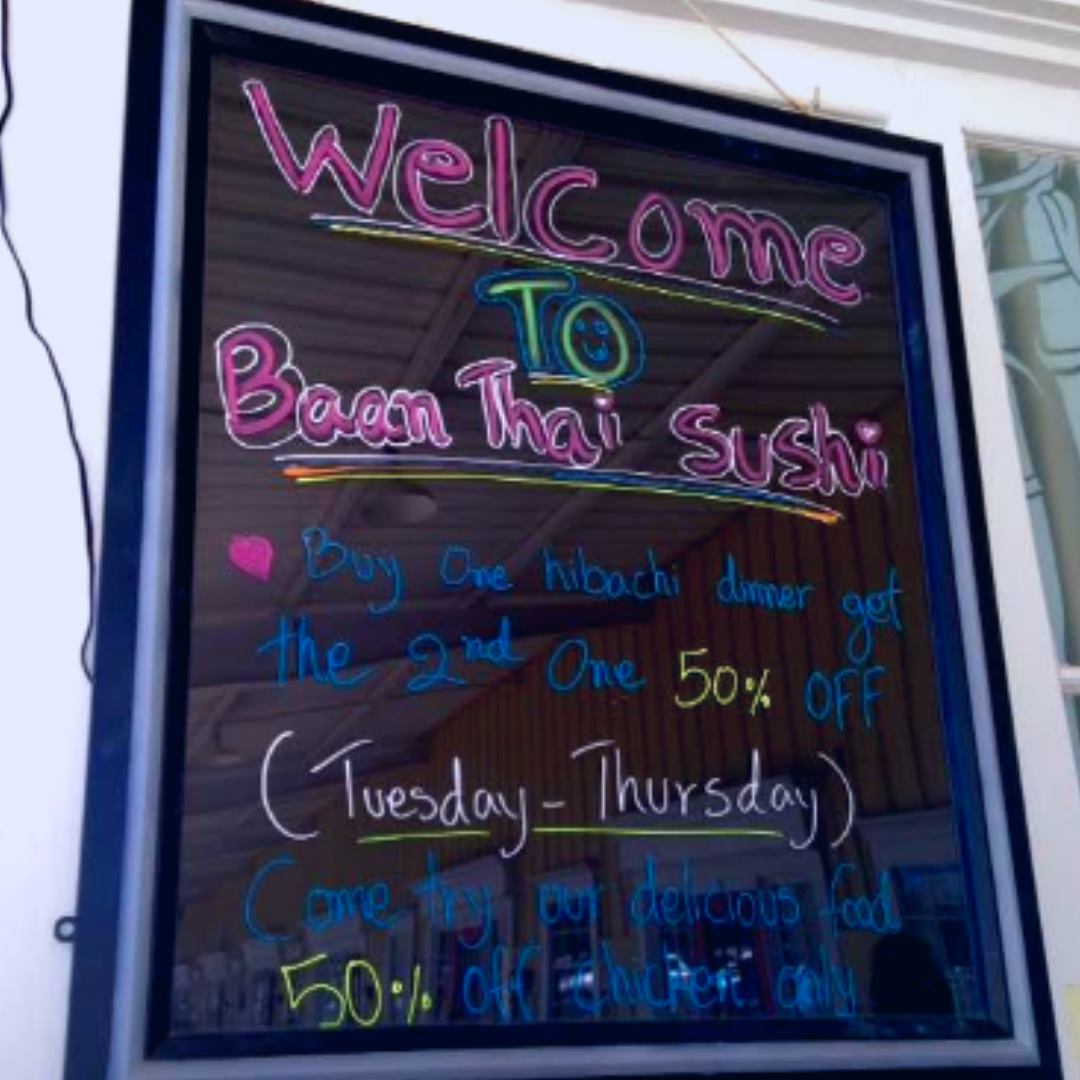 Welcome
TO
Baan Thai Sushi
Buy One hibachi dinner get
the 2nd One 50% OFF
(Tuesday - Thursday)
Come try our delicious food
50% off chicken only